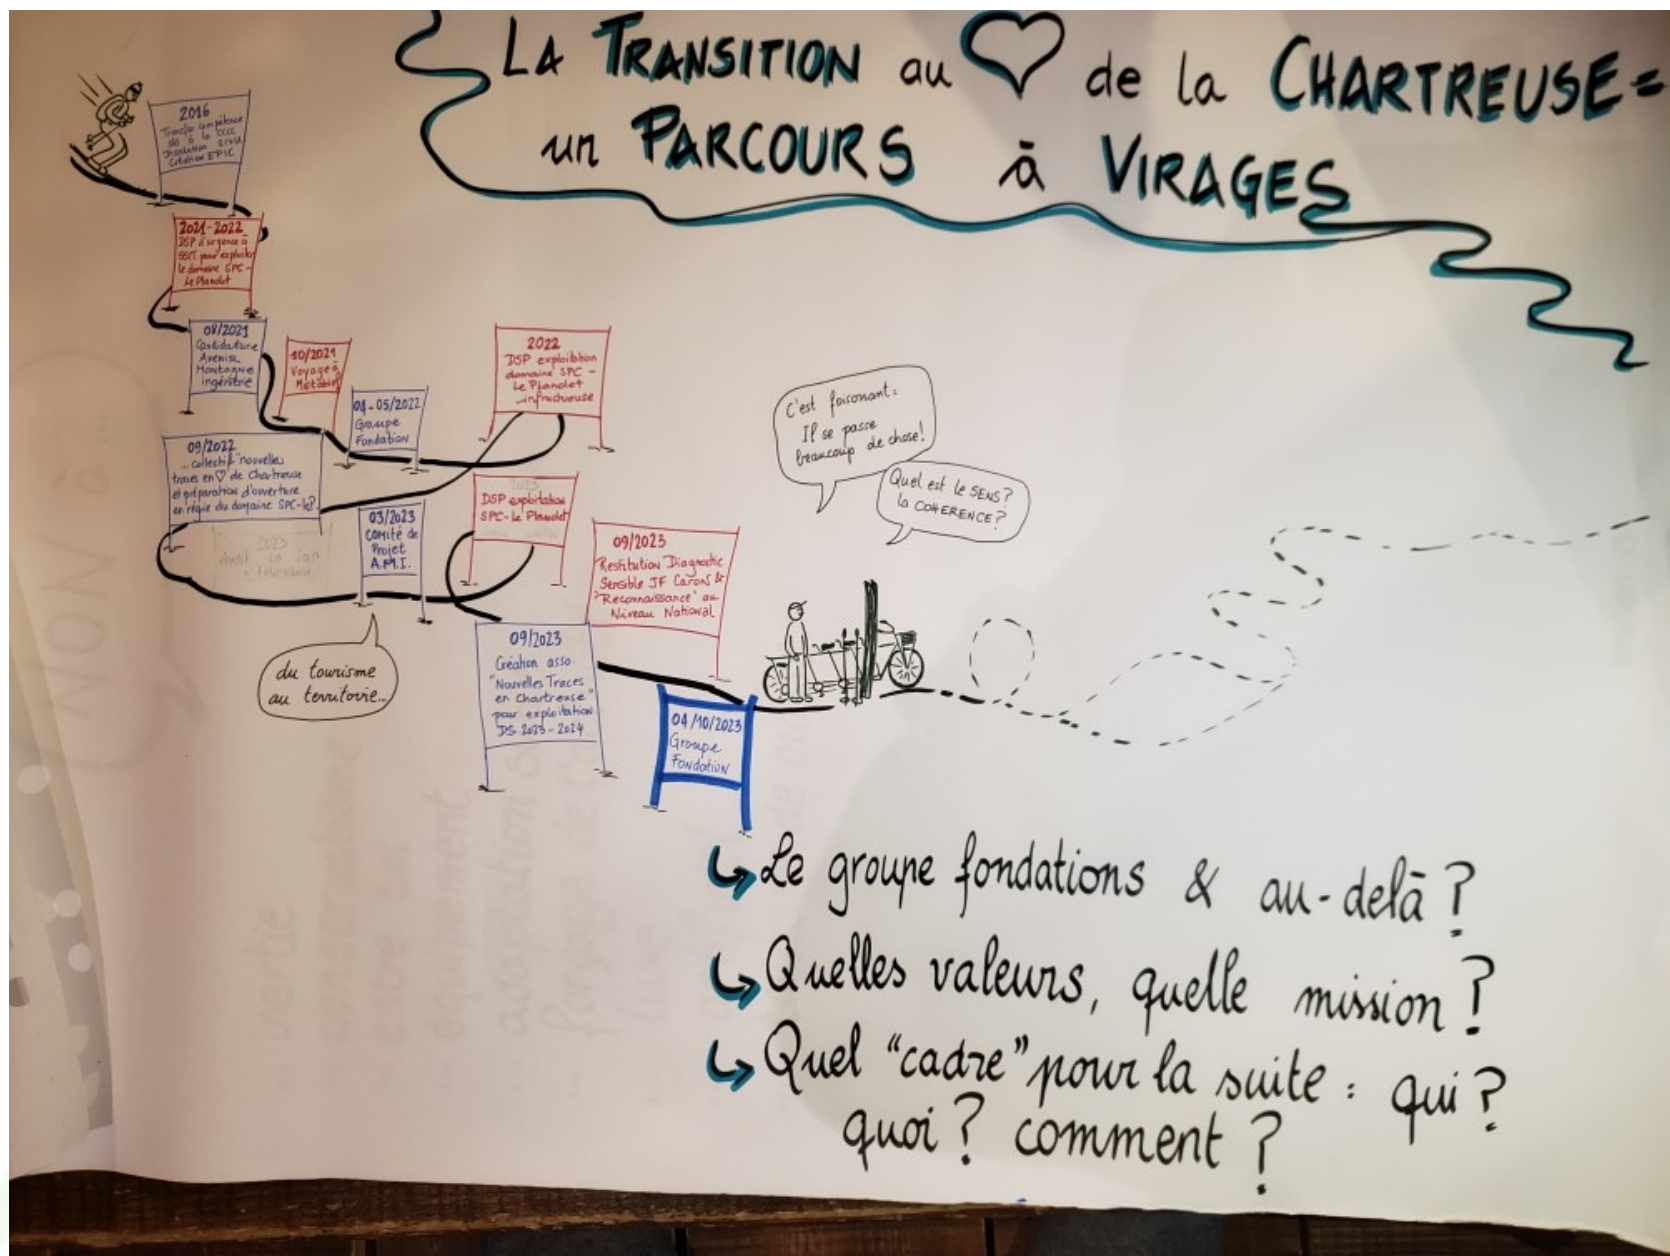 LA TRANSITION au ♡ de la CHARTREUSE =
un PARCOURS à VIRAGES
2016
Transfer compétence
à la CCCC
Création EPIC
2021-2022
DSP d'urgence à
SSIT pour exploiter
le domaine SPC-
Le Planolet
08/2021
Candidature
Avenir
Montagne
ingénierie
10/2021
Voyage à
Métabief
04-05/2022
Groupe
Fondation
2022
DSP exploitation
domaine SPC -
Le Planolet
infructueuse
09/2022
... collectif "nouvelles
traces en ♡ de Chartreuse
et préparation d'ouverture
en régie du domaine SPC-leP.
03/2023
COMITÉ de
Projet
A.M.I.
2023
DSP exploitation
SPC-Le Planolet
09/2023
Restitution Diagnostic
Sensible JF Carons &
"Reconnaissance" au
Niveau National
du tourisme
au territoire...
09/2023
Création asso.
"Nouvelles Traces
en Chartreuse"
pour exploitation
DS 2023-2024
04/10/2023
Groupe
Fondation
C'est foisonant :
Il se passe
beaucoup de chose !
Quel est le SENS ?
la COHERENCE ?
Le groupe fondations & au-delà ?
Quelles valeurs, quelle mission ?
Quel "cadre" pour la suite : qui ?
quoi ? comment ?
NON à ...
inertie
conservatisme
entre soi
équipement